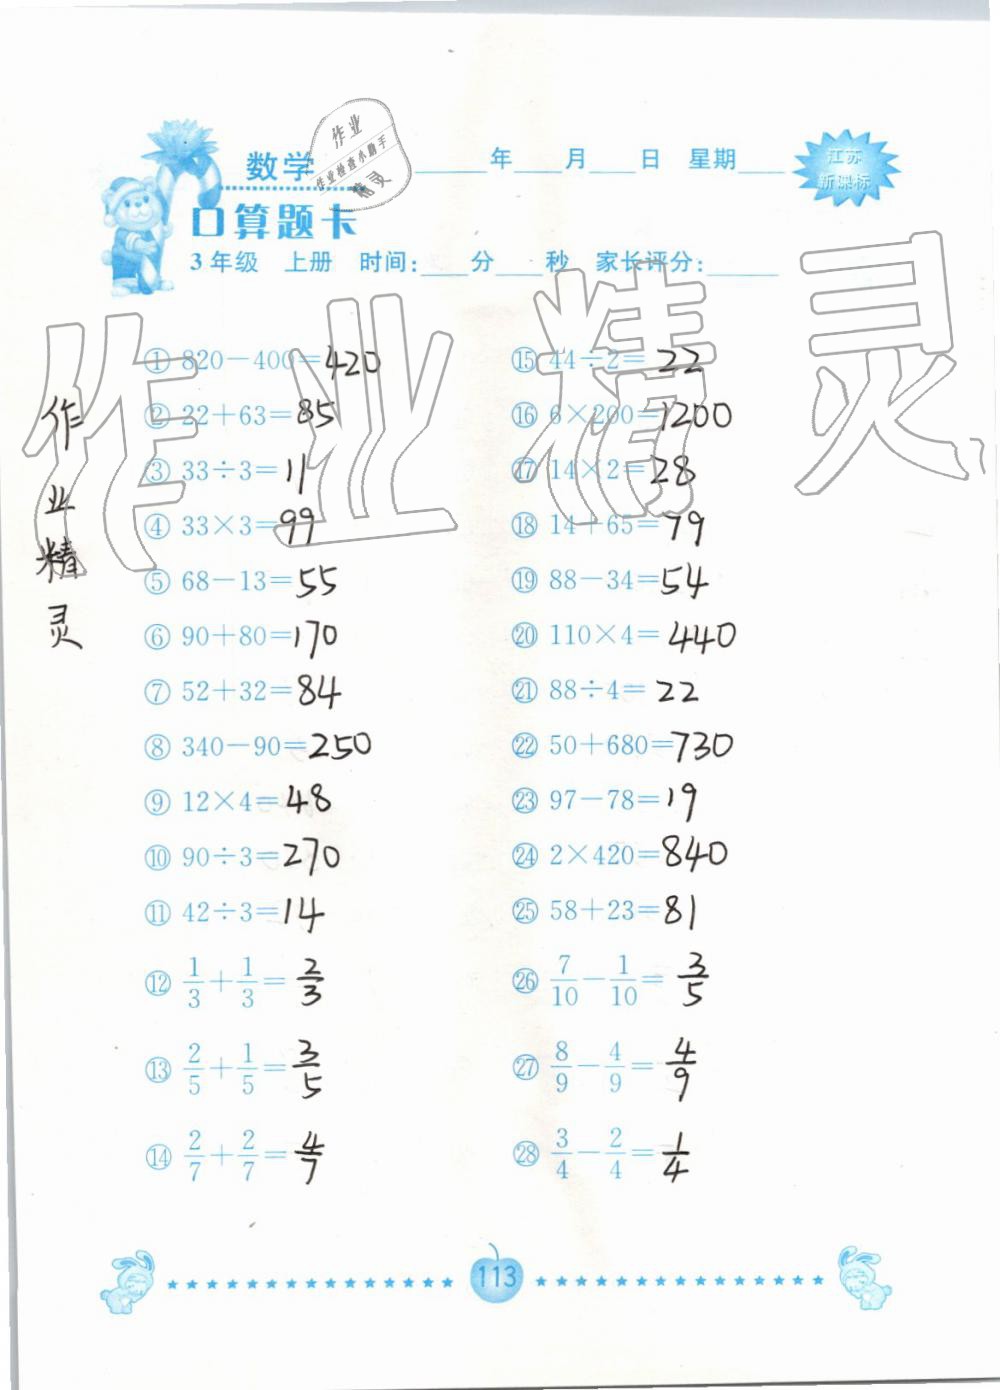 数学
作业
作业检查小助手
精灵
年 月 日 星期
江苏
新课标
口算题卡
3年级 上册 时间: 分 秒 家长评分:
作业精灵
作业精灵
① 820－400＝420
② 22＋63＝85
③ 33÷3＝11
④ 33×3＝99
⑤ 68－13＝55
⑥ 90＋80＝170
⑦ 52＋32＝84
⑧ 340－90＝250
⑨ 12×4＝48
⑩ 90÷3＝270
⑪ 42÷3＝14
⑫ 1/3＋1/3＝2/3
⑬ 2/5＋1/5＝3/5
⑭ 2/7＋2/7＝4/7
⑮ 44÷2＝22
⑯ 6×200＝1200
⑰ 14×2＝28
⑱ 14＋65＝79
⑲ 88－34＝54
⑳ 110×4＝440
㉑ 88÷4＝22
㉒ 50＋680＝730
㉓ 97－78＝19
㉔ 2×420＝840
㉕ 58＋23＝81
㉖ 7/10－1/10＝3/5
㉗ 8/9－4/9＝4/9
㉘ 3/4－2/4＝1/4
113